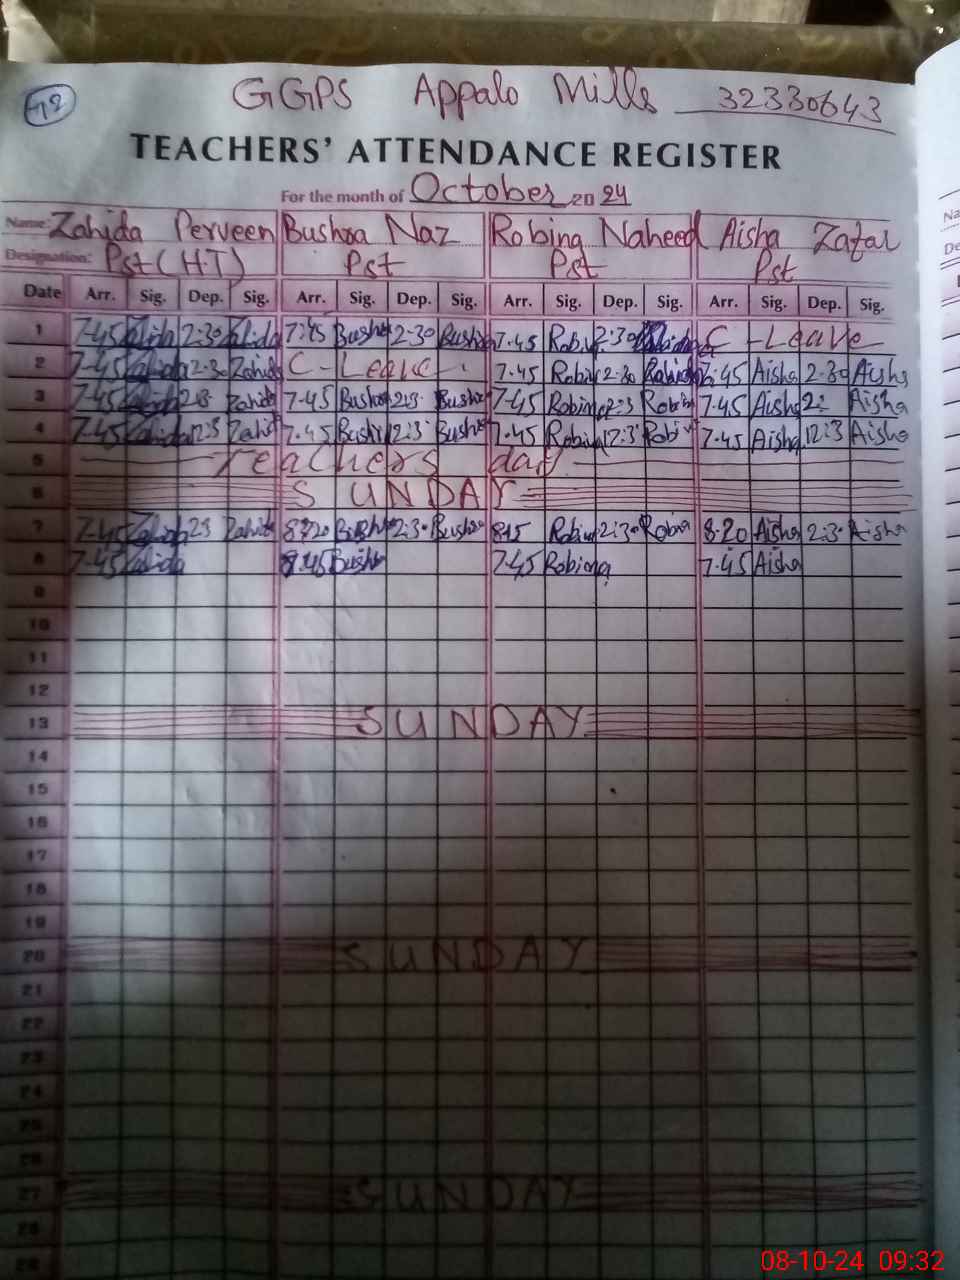 GGPS Appalo Mills 32330643
TEACHERS' ATTENDANCE REGISTER
For the month of October 2024
Name: Zahida Perveen Bushra Naz Robina Naheed Aisha Zafar
Designation: Pst (H.T) Pst Pst Pst
Date Arr. Sig. Dep. Sig. Arr. Sig. Dep. Sig. Arr. Sig. Dep. Sig. Arr. Sig. Dep. Sig.
1 7-45 2:30 Zahida 7:45 Bushra 2:30 Bushra 7.45 Robina 2:30 C-Leave
2 7-45 Zahida 2.30 Zahida C-Leave 7.45 Robina 2:30 Robina 7.45 Aisha 2:30 Aisha
3 7-45 Zahida Zahida 7-45 Bushra Bushra 7-45 Robina 12:3 Robina 7.45 Aisha Aisha
4 7-45 Zahida 12:3 Zahida 7.45 Bushra 12:3 Bushra 7.45 Robina 12:3 Robina 7.45 Aisha 12:3 Aisha
5 Teachers day
6 SUNDAY
7 7-45 Zahida Zahida 8:20 Bushra 2:30 Bushra 815 Robina 2:30 Robina 8.20 Aisha 2:30 Aisha
8 7-45 Zahida Bushra 7.45 Robina 7.45 Aisha
9
10
11
12
13 SUNDAY
14
15
16
17
18
19
20 SUNDAY
21
22
23
24
25
26
27 SUNDAY
28
08-10-24 09:32